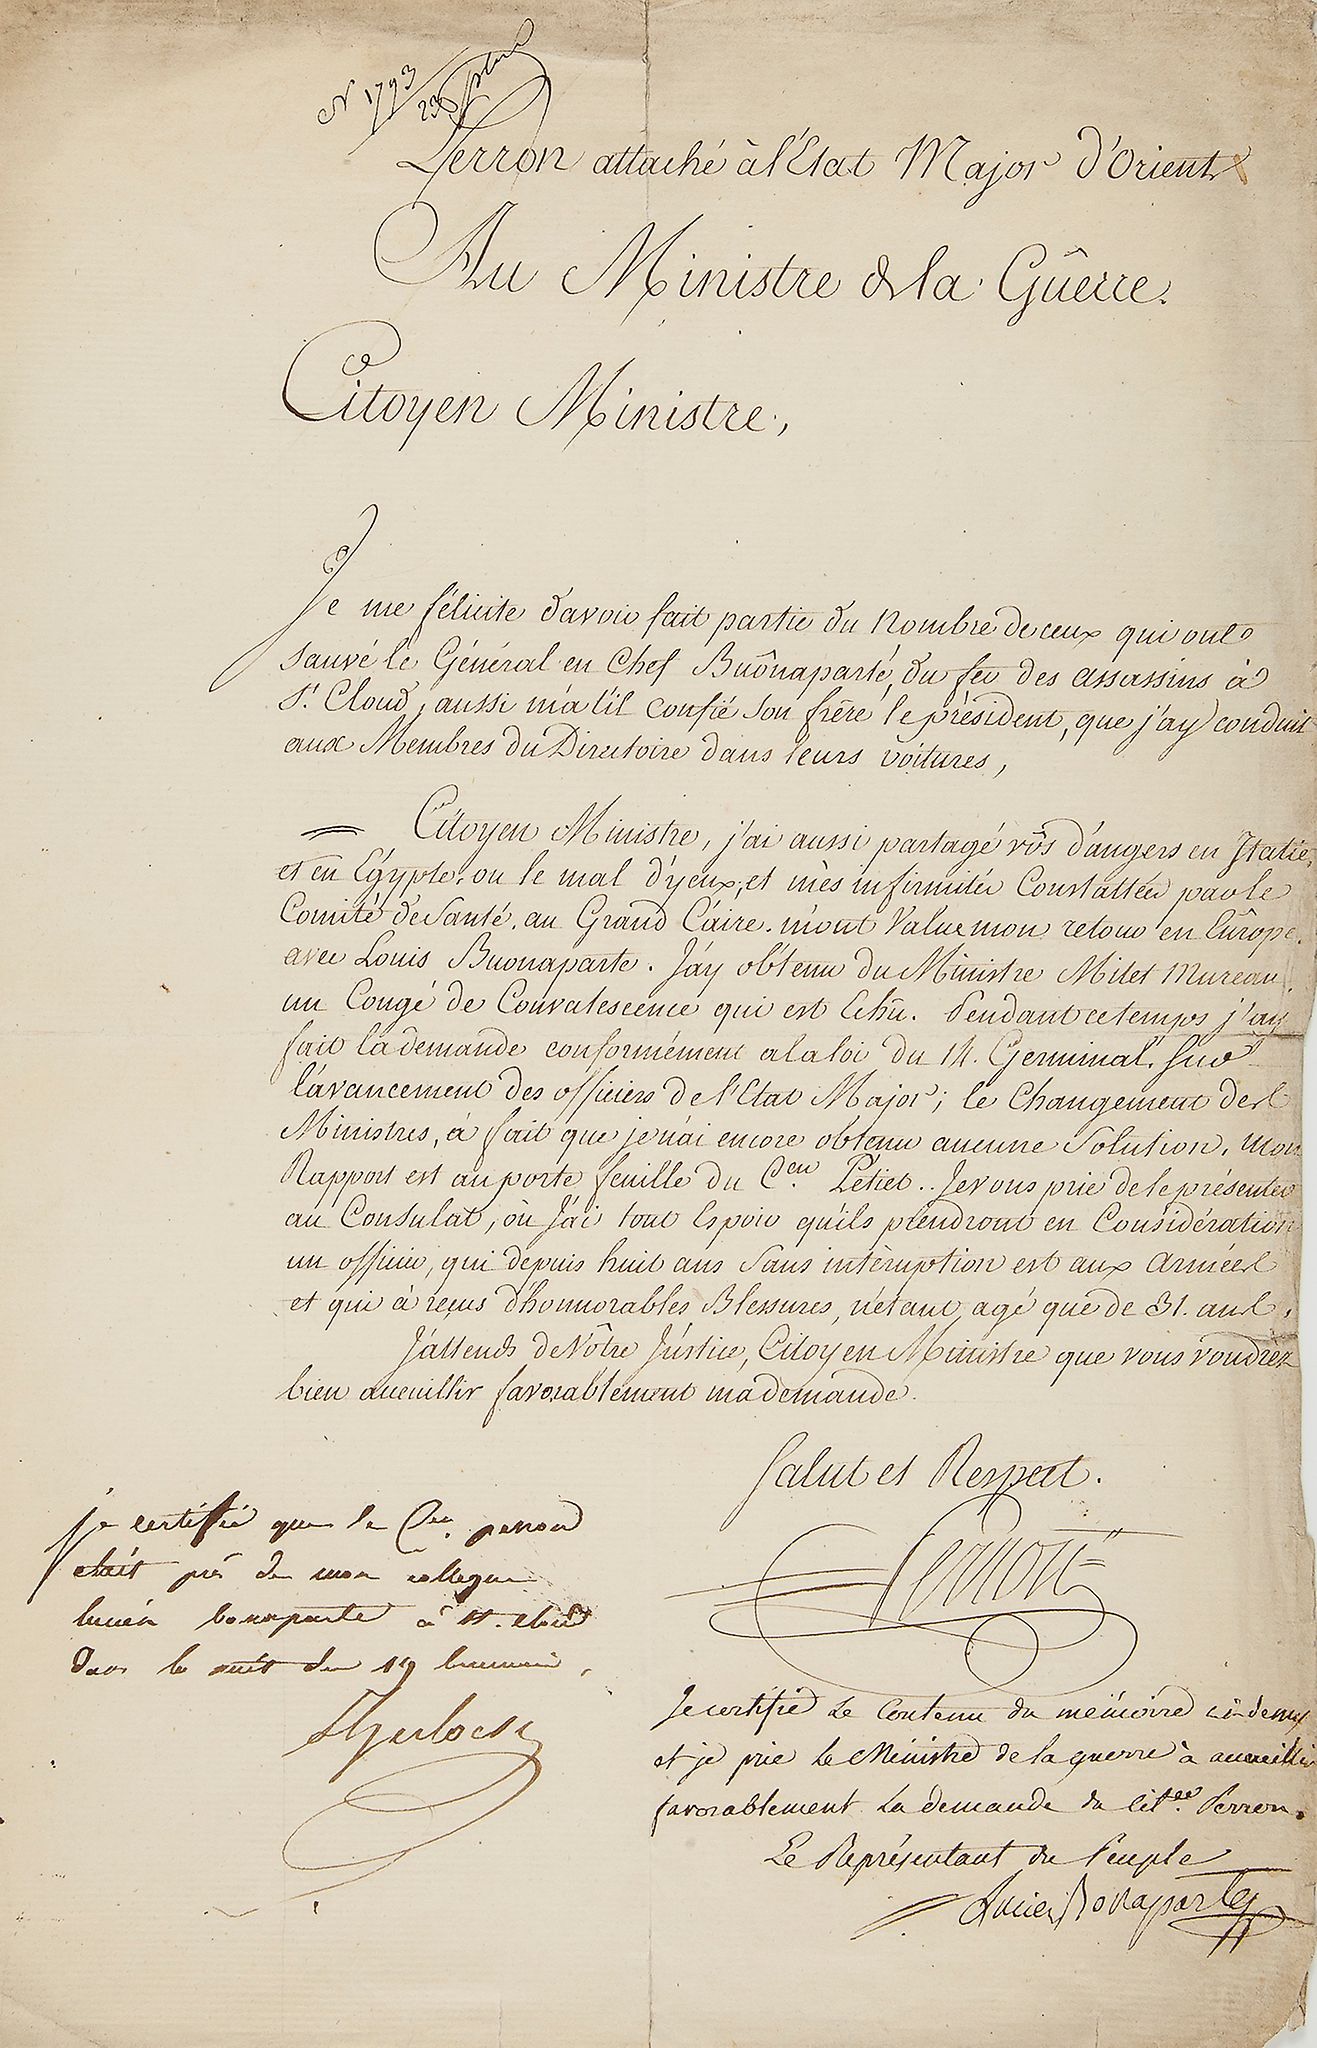 N 1793
23
Perron attaché à l'Etat Major d'Orient
Au Ministre de la Guêrre.
Citoyen Ministre,
Je me félicite d'avoir fait partie du Nombre de ceux qui ont
sauvé le Général en Chef Buônaparté, du feu des assassins à
St. Cloud, aussi m'a t'il confié son frère le président, que j'ay conduit
aux Membres du Directoire dans leurs voitures,
Citoyen Ministre, j'ai aussi partagé vôs d'angers en Italie,
et en Egypte, ou le mal d'yeux, et mès infirmités Constattées par le
Comité de Santé. au Grand Caire. m'ont Value mon retour en Eûrope.
avec Louis Buonaparte. J'ay obtenu du Ministre Milet Mureau,
un Congé de Convalescence qui est Echû. Pendant ce temps j'ay
fait la demande conformément a la loi du 14. Germinal, sur
l'avancement des officiers de l'Etat Major; le Changement des
Ministres, à fait que je n'ai encore obtenu aucune Solution. mon
Rapport est au porte feuille du Cen. Pétiet.. Je vous prie de le présenter
au Consulat, où J'ai tout Espoir qu'ils prendront en Considération
un officier, qui depuis huit ans Sans intèruption est aux Armées
et qui à reçus d'honnorables Blessures, n'étant agé que de 31. ans.
J'attends de Vôtre Jústice, Citoyen Ministre que vous voudrez
bien acceuillir favorablement ma demande.
Salut et Respect.
Perron
je certifie que le Cen. perron
était près de mon collegue
lucien bonaparte à st. cloud
dans la nuit du 19 brumaire,
Sherlock
Je certifie le contenu du mémoire ci-dessus
et je prie le Ministre de la guerre à accueillir
favorablement la demande du Citen. Perron.
Le Représentant du Peuple
Lucien Bonaparte